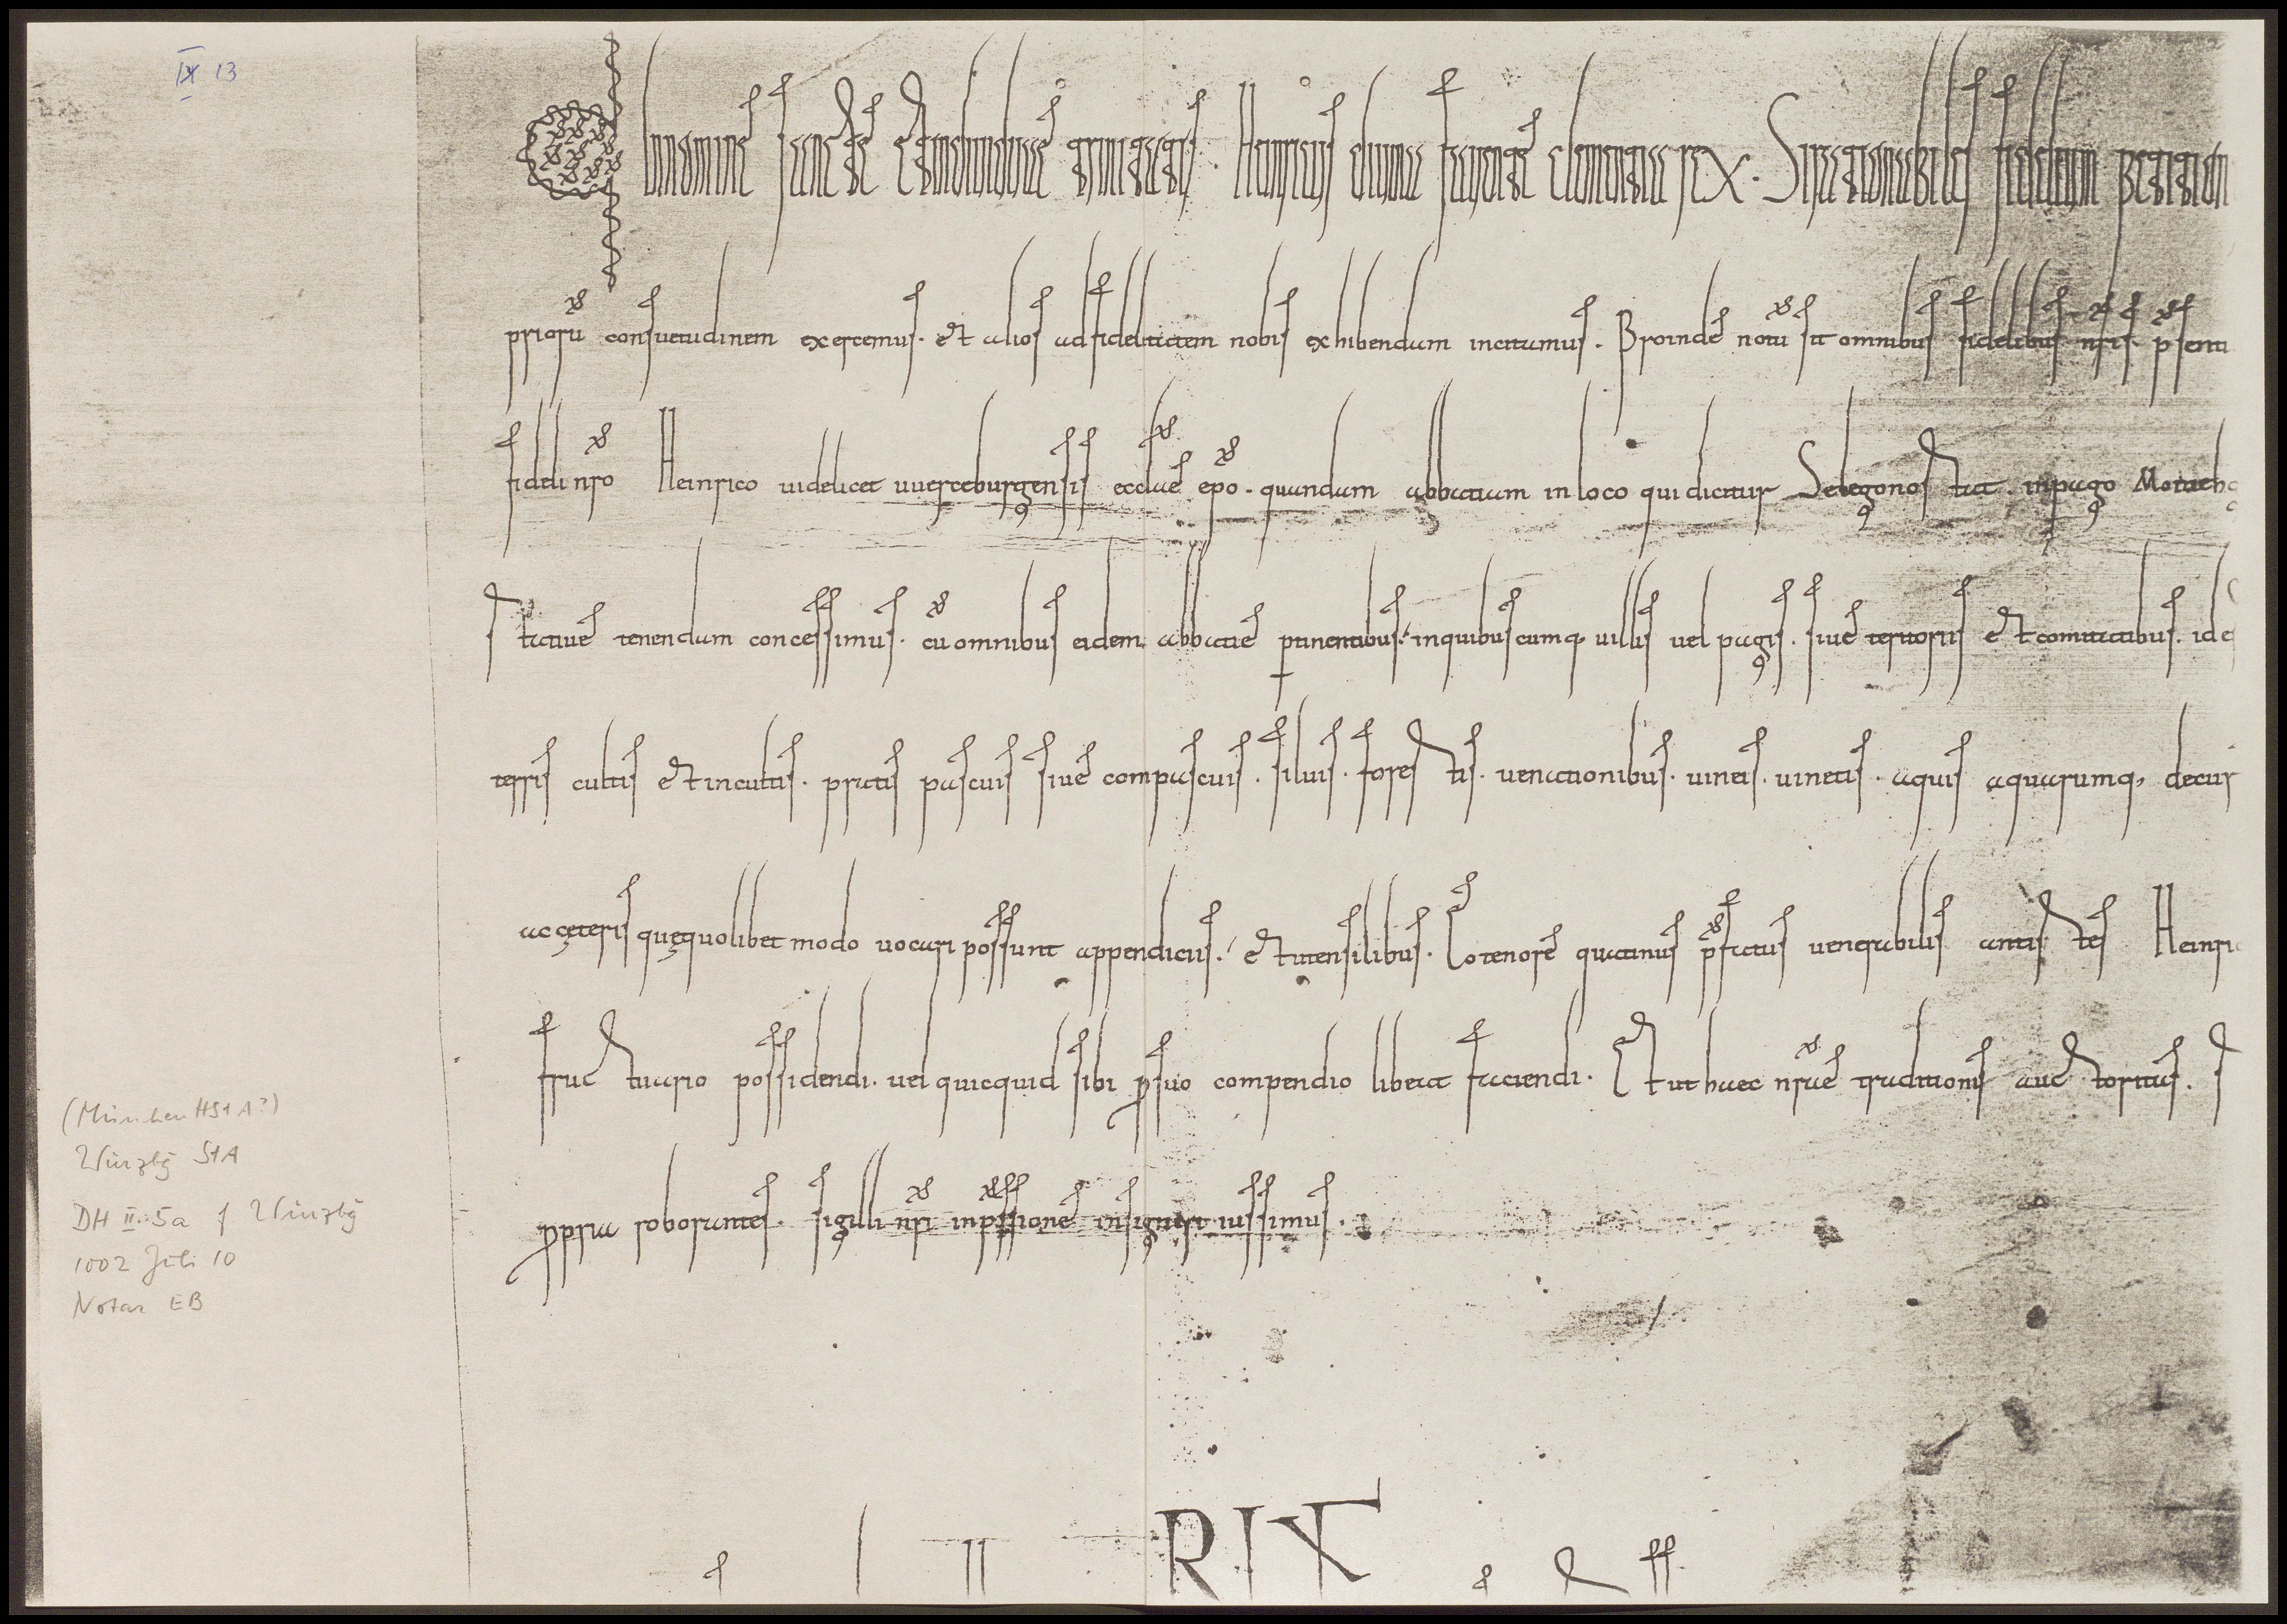 IX 13
In nomine sanctae et individuae trinitatis. Heinricus divina favente clementia rex. Si rationabiles fidelium petition
priorū consuetudinem exercemus. et alios ad fidelitatem nobis exhibendam incitamus. Proinde notū sit omnibus fidelibus nrīs. psenti
fideli nrō Heinrico videlicet uuerceburgensis eccłae epō. quandam abbatiam in loco qui dicitur Selegonostat. in pago Moinehg
stative tenendam concessimus. cū omnibus eidem abbatiae ptinentibus. in quibuscumq, villis vel pagis. sive territoriis et comitatibus. id e
terris cultis et incultis. pratis pascuis sive compascuis. silvis. forestis. venationibus. vineis. vinetis. aquis aquarumq, decur
ac ceteris quę quolibet modo vocari possunt appendiciis. et utensilibus. Eo tenore quatinus pfatus venerabilis antistes Heinric
fructuario possidendi. vel quicquid sibi p suo compendio libeat faciendi. Et ut haec nrāe traditionis auctoritas. s
ppria roborantes. sigilli nrī inpssione insigniri iussimus.
RIX
(München HStA?)
Würzbg StA
DH II. 5a f Würzbg
1002 Juli 10
Notar EB